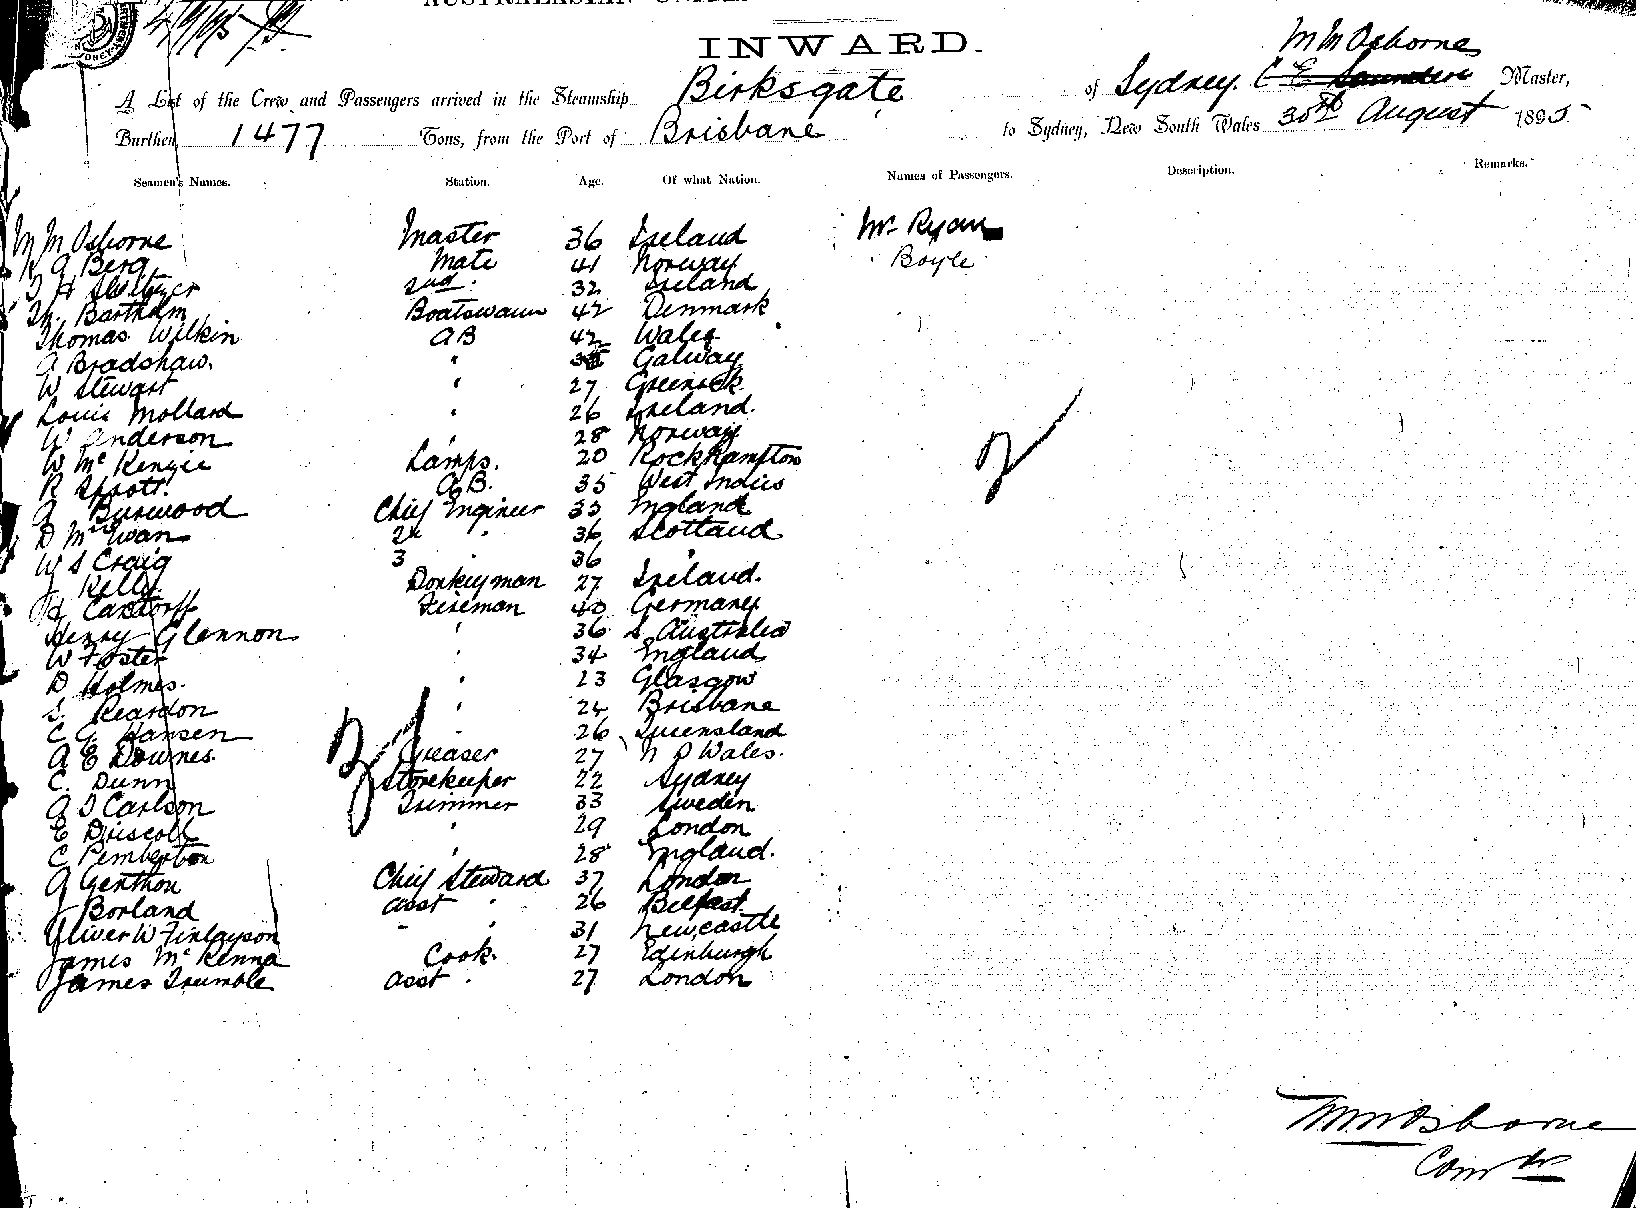 INWARD.
M M Osborne
A List of the Crew and Passengers arrived in the Steamship Birksgate of Sydney. C E Saunders Master,
Burthen 1477 Tons, from the Port of Brisbane to Sydney, New South Wales 30th August 1895
Seamen's Names. Station. Age. Of what Nation. Names of Passengers. Description. Remarks.
M M Osborne Master 36 Ireland Mr Ryan
A Berg Mate 41 Norway Boyle
2nd 32 Ireland
Bartholm Boatswain 42 Denmark
Thomas Wilkin AB 42 Wales
A Bradshaw. " Galway
W Stewart " 27 Greenock
Louis Mollard " 26 Ireland.
W Anderson 28 Norway
W McKenzie Lamps. 20 Rockhampton
R Sprott. A.B. 35 West Indies
A Burwood Chief Engineer 33 England
D McEwan 2n " 36 Scotland
W S Craig 3 " 36 "
J Kelly Donkeyman 27 Ireland.
Fireman 40 Germany
Henry Glennon " 36 S. Australia
W Foster " 34 England
D Holmes. " 23 Glasgow
S. Reardon " 24 Brisbane
C G Hansen " 26 Queensland
A E Downes. Greaser 27 N S Wales.
C. Dunn Storekeeper 22 Sydney
A T Carlson Trimmer 33 Sweden
E Driscoll " 29 London
C Pemberton " 28 England.
A Genthon Chief Steward 37 London
J Borland Asst " 26 Belfast
Oliver W Finlayson " " 31 Newcastle
James McKenna Cook. 27 Edinburgh
James Trumble Asst " 27 London
M M Osborne
Comdr